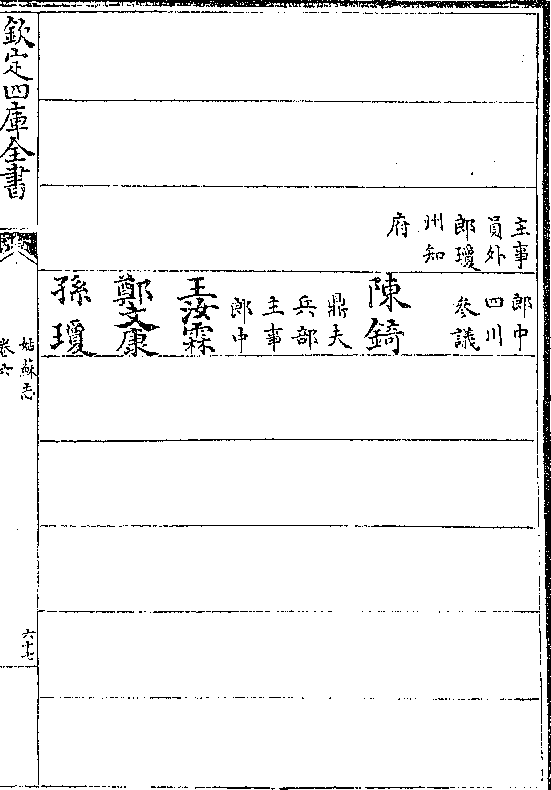 主事
員外
郎瓊
州知
府
郎中
四川
參議
陳錡
鼎夫
兵部
主事
郎中
王汝霖
鄭文康
孫瓊
欽定四庫全書
姑蘇志
卷六
六十七